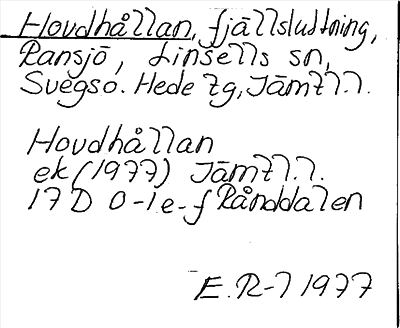 Hovdhållan, fjällsluttning,
Ransjö, Linsells sn,
Svegs o. Hede tg, Jämtl. l.
Hovdhållan
ek (1977) Jämtl. l.
17 D 0-1 e-f Rånddalen
E. R-l 1977